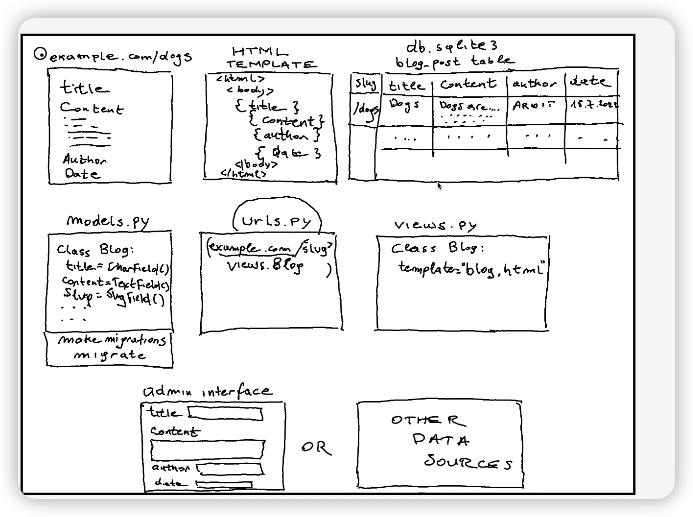 example.com/dogs
title
Content
Author
Date
HTML
TEMPLATE
<html>
<body>
{ title }
{ content }
{ author }
{ date }
</body>
</html>
db.sqlite3
blog_post table
slug title content author date
/dogs Dogs Dogs are.... ARDIT
models.py
Class Blog:
title= CharField()
content=TextField()
slug = SlugField()
make migrations
migrate
urls.py
(example.com/slug>
views.Blog )
views.py
Class Blog:
template="blog.html"
admin interface
title
content
author
date
OR
OTHER
DATA
SOURCES